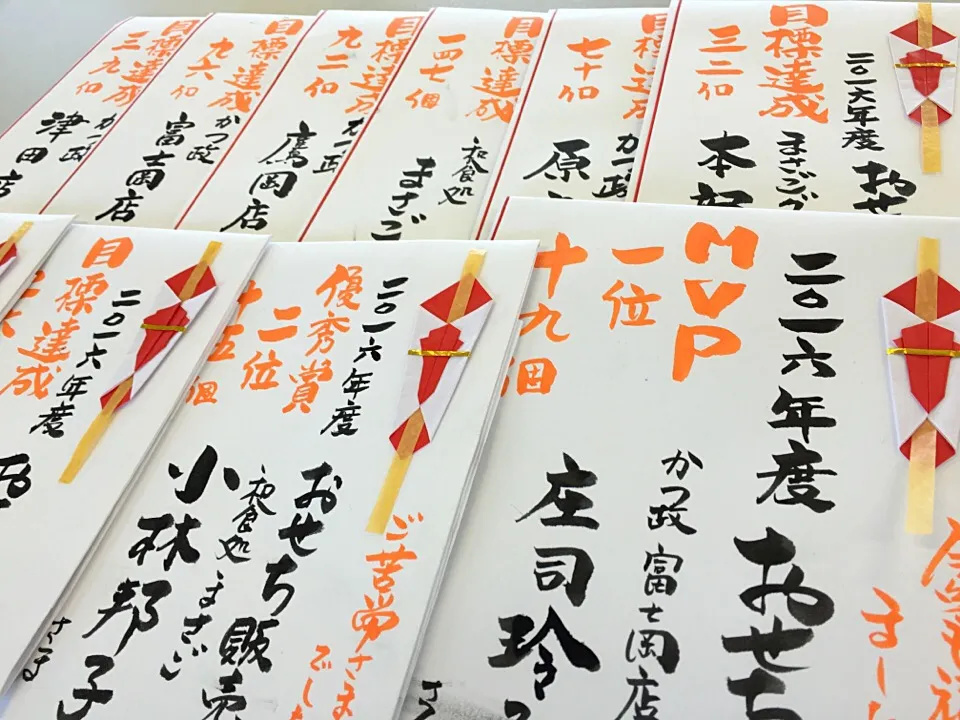 目標達成
三九個
かつ政
津田店
目標達成
九六個
かつ政
富南店
目標達成
九二個
かつ政
鷹岡店
目標達成
一四七個
和食処
まさご
目標達成
七十個
かつ政
原
二〇一六年度
おせ
目標達成
三二個
まさご
本
目標達成
二〇一六年度
二〇一六年度
おせち販売
優秀賞
二位
十五個
和食処 まさご
小林邦子
さま
ご苦労さま
でした
二〇一六年度
おせち
MVP
一位
十九個
かつ政 富士岡店
庄司玲
さ